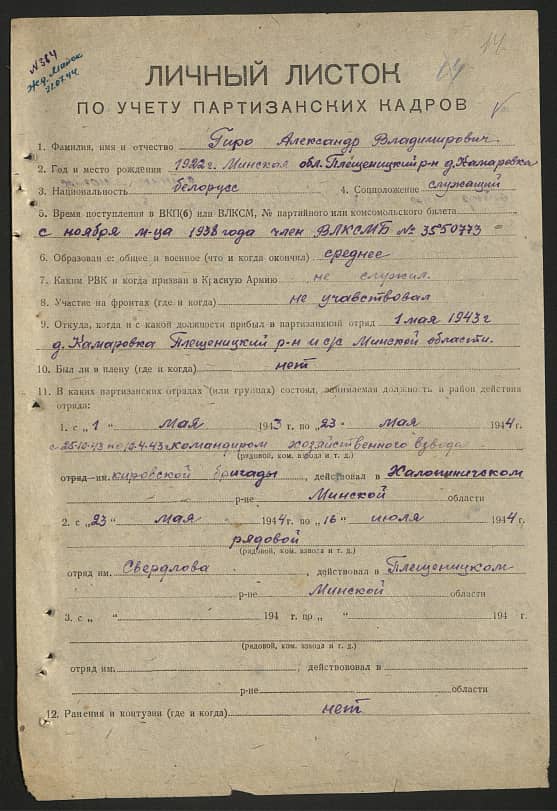 14
N 364
31.07.44
ЛИЧНЫЙ ЛИСТОК
ПО УЧЕТУ ПАРТИЗАНСКИХ КАДРОВ
1. Фамилия, имя и отчество Гиро Александр Владимирович
2. Год и место рождения 1922 г. Минская обл. Плещеницкий р-н д. Камаровка
3. Национальность белорусс 4. Соцположение служащий
5. Время поступления в ВКП(б) или ВЛКСМ, № партийного или комсомольского билета
с ноября м-ца 1938 года член ВЛКСМБ № 3550773
6. Образование: общее и военное (что и когда окончил) среднее
7. Каким РВК и когда призван в Красную Армию не служил.
8. Участие на фронтах (где и когда) не учавствовал
9. Откуда, когда и с какой должности прибыл в партизанский отряд 1 мая 1943 г
д. Камаровка Плещеницкий р-н и с/с Минской области.
10. Был ли в плену (где и когда) нет
11. В каких партизанских отрядах (или группах) состоял, занимаемая должность и район действия
отряда:
1. с „1 " мая 1943 г. по „23 " мая 1944 г.
с 25-10-43 по 12-4-43 командиром хозяйственного взвода
(рядовой, ком. взвода и т. д.)
отряд им. кировской бригады, действовал в Халопиничском
р-не Минской области
2. с „23 " мая 1944 г. по „16 " июля 1944 г.
рядовой
(рядовой, ком. взвода и т. д.)
отряд им. Свердлова, действовал в Плещеницком
р-не Минской области
3. с „ " 194 г. по „ " 194 г.
(рядовой, ком. взвода и т. д.)
отряд им. , действововал в
р-не области
12. Ранения и контузии (где и когда) нет